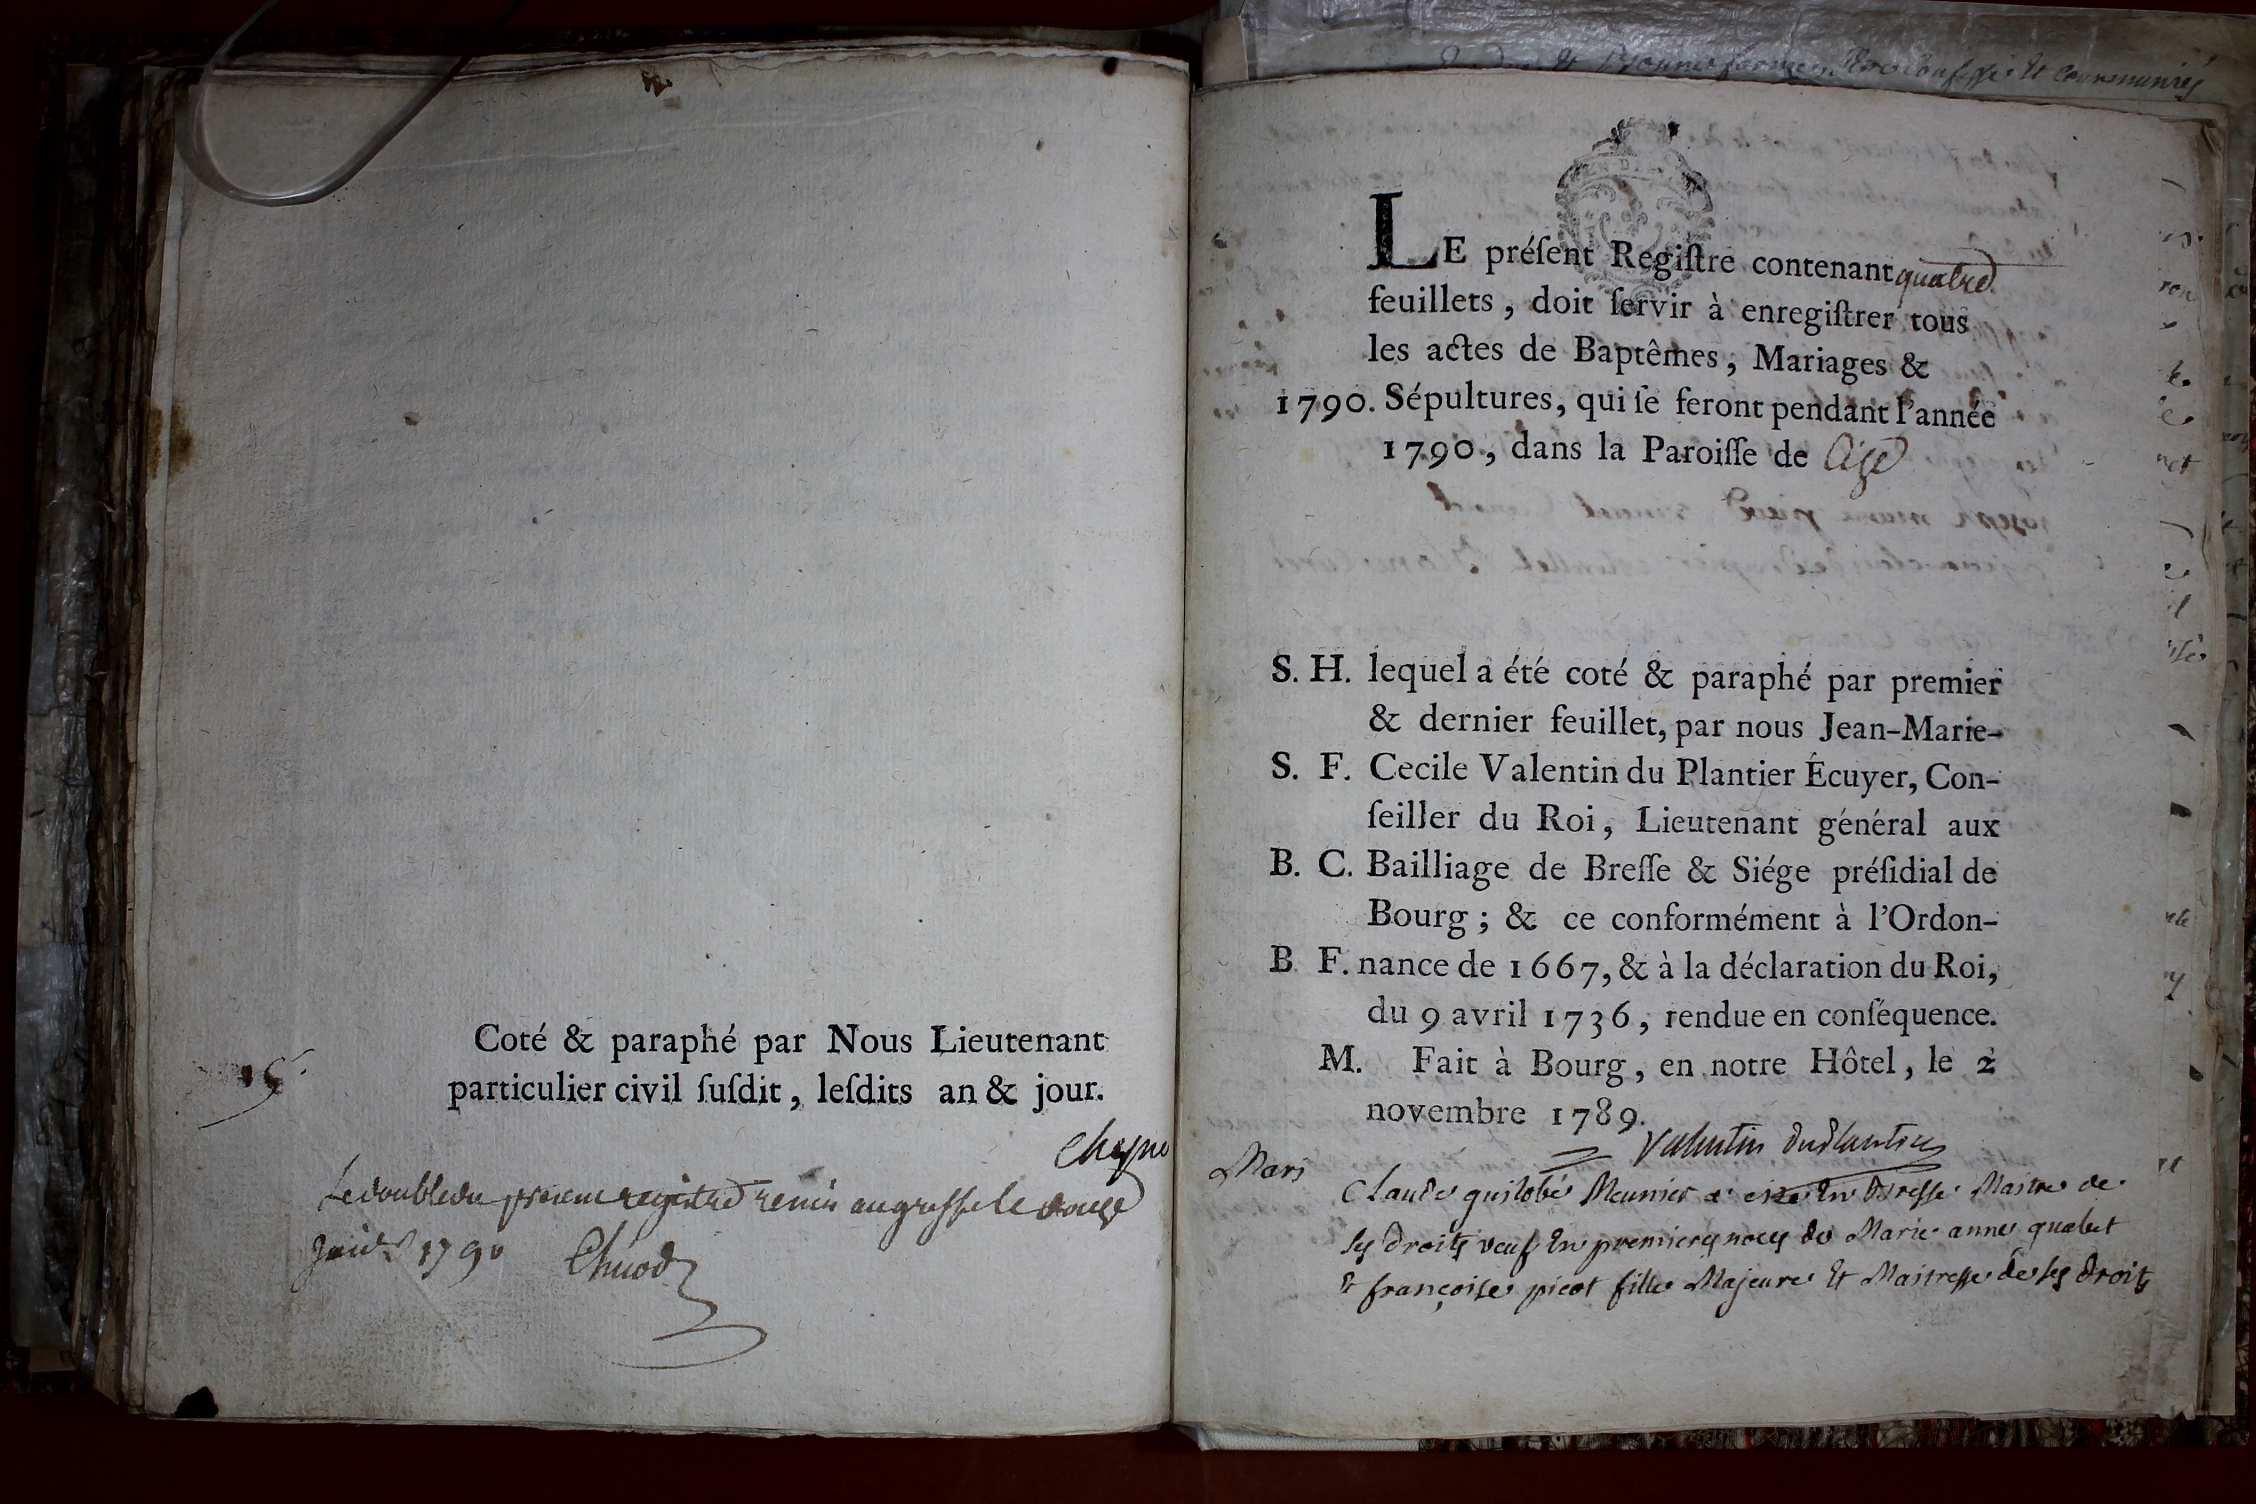 Coté & paraphé par Nous Lieutenant
particulier civil ſuſdit, leſdits an & jour.
Le double du présent registre remis au greffe le douze
1790
LE préſent Regiſtre contenant quatre
feuillets, doit ſervir à enregiſtrer tous
les actes de Baptêmes, Mariages &
1790. Sépultures, qui ſe feront pendant l'année
1790, dans la Paroiſſe de Cize
S. H. lequel a été coté & paraphé par premier
& dernier feuillet, par nous Jean-Marie-
S. F. Cecile Valentin du Plantier Écuyer, Con-
ſeiller du Roi, Lieutenant général aux
B. C. Bailliage de Breſſe & Siége préſidial de
Bourg; & ce conformément à l'Ordon-
B F. nance de 1667, & à la déclaration du Roi,
du 9 avril 1736, rendue en conſéquence.
M. Fait à Bourg, en notre Hôtel, le 2
novembre 1789.
Valentin duplantier
Mars
Claude Meunier a cize En Bresse Maitre de
ses droits veuf En premieres noces de Marie anne
Et françoise picot fille Majeure Et Maitresse de ses droits